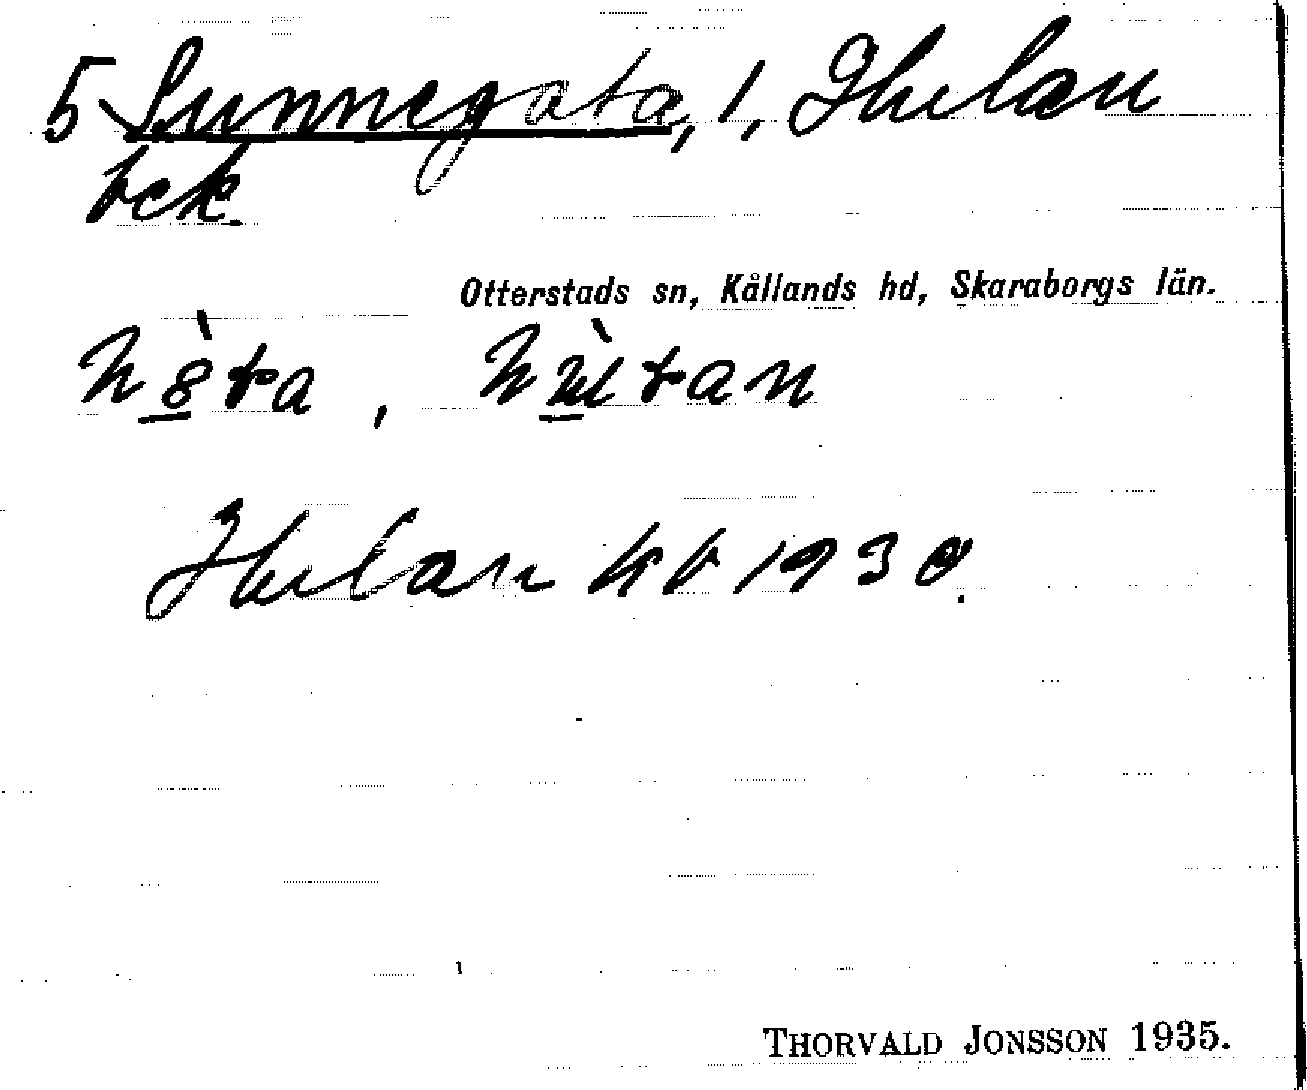 5 Sunnegata, 1, Hulan
bck.
Otterstads sn, Kållands hd, Skaraborgs län.
Hulan kb 1930.
THORVALD JONSSON 1935.